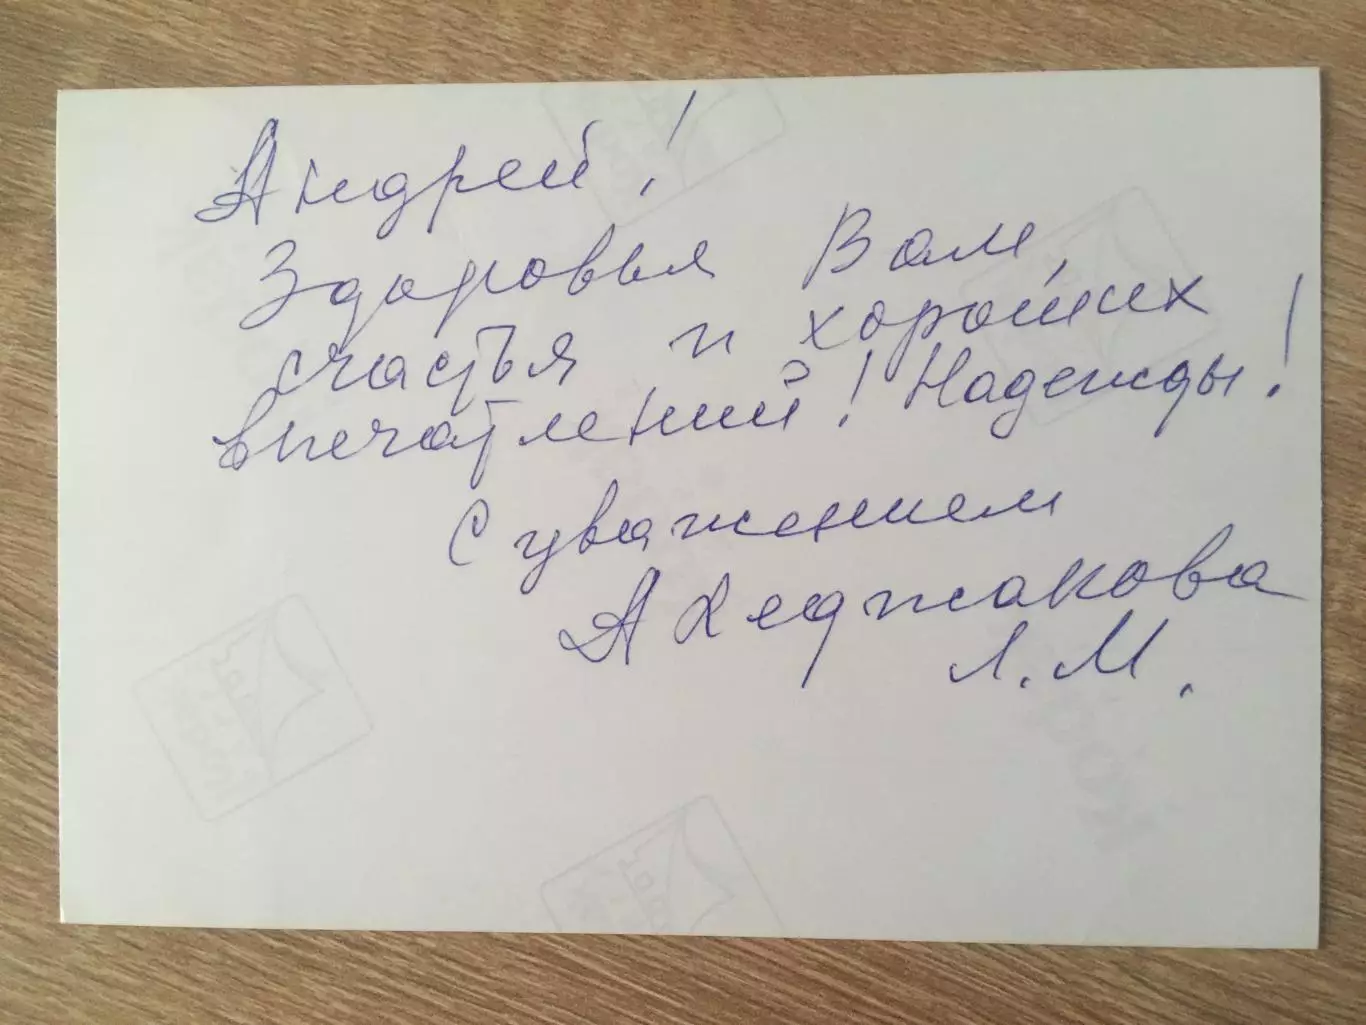 Андрей!
Здоровья Вам,
счастья и хороших
впечатлений! Надежды!
С уважением
Ахеджакова
Л.М.